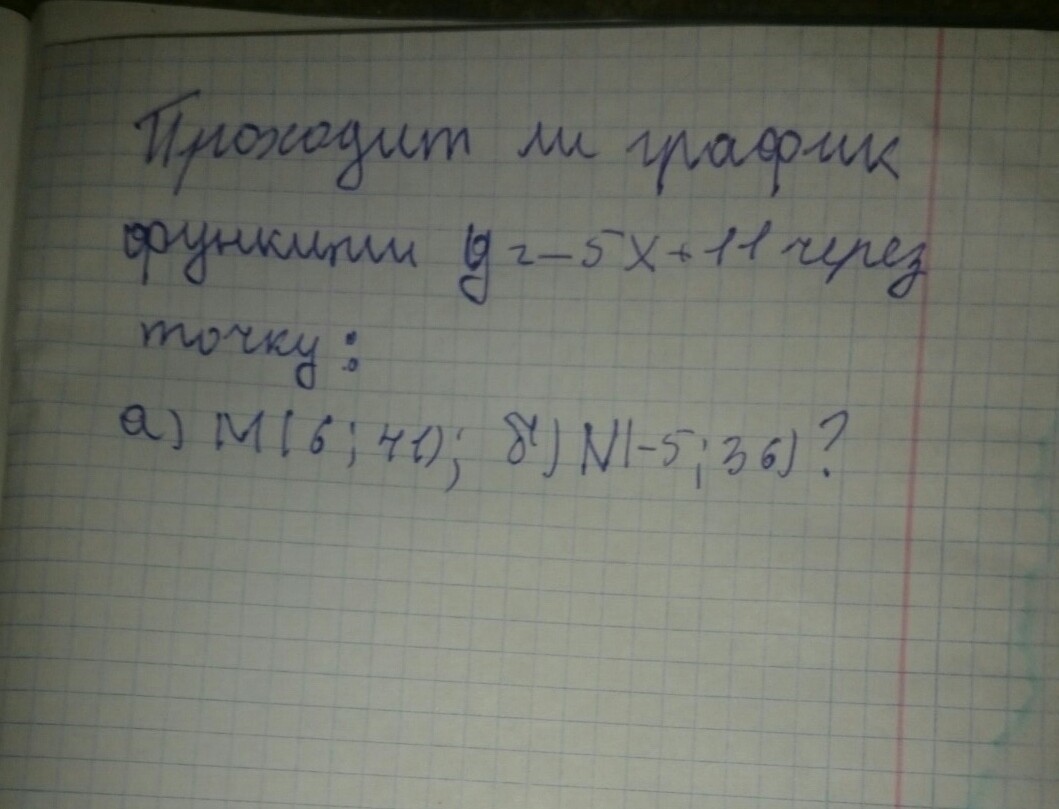 Проходит ли график
функции y=-5x+11 через
точку:
а) M(6; 41); б) N(-5; 36)?